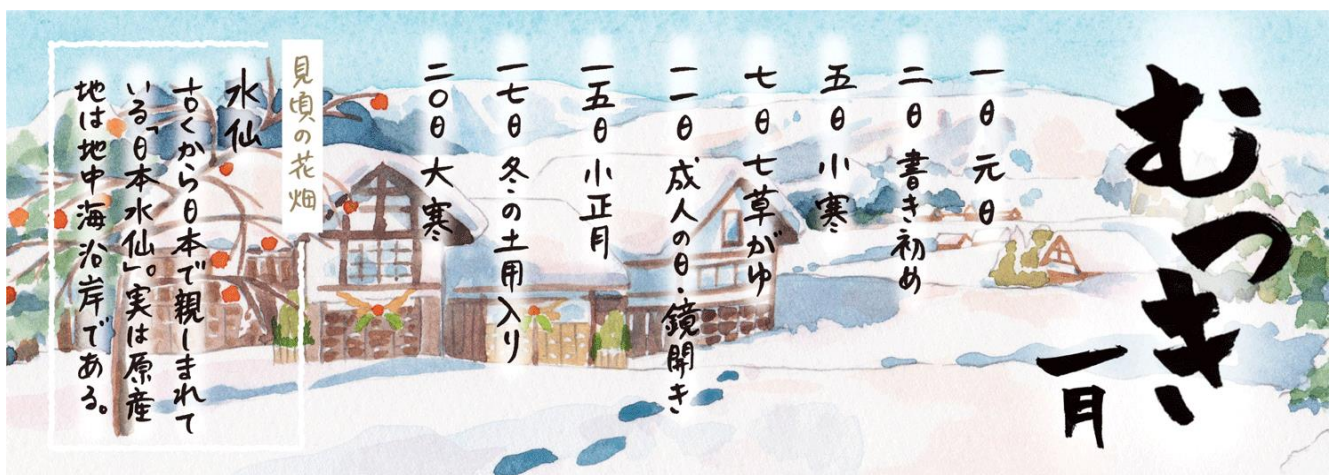 むつき
一月
一日 元日
二日 書き初め
五日 小寒
七日 七草がゆ
一一日 成人の日・鏡開き
一五日 小正月
一七日 冬の土用入り
二〇日 大寒
見頃の花畑
水仙
古くから日本で親しまれて
いる「日本水仙」。実は原産
地は地中海沿岸である。